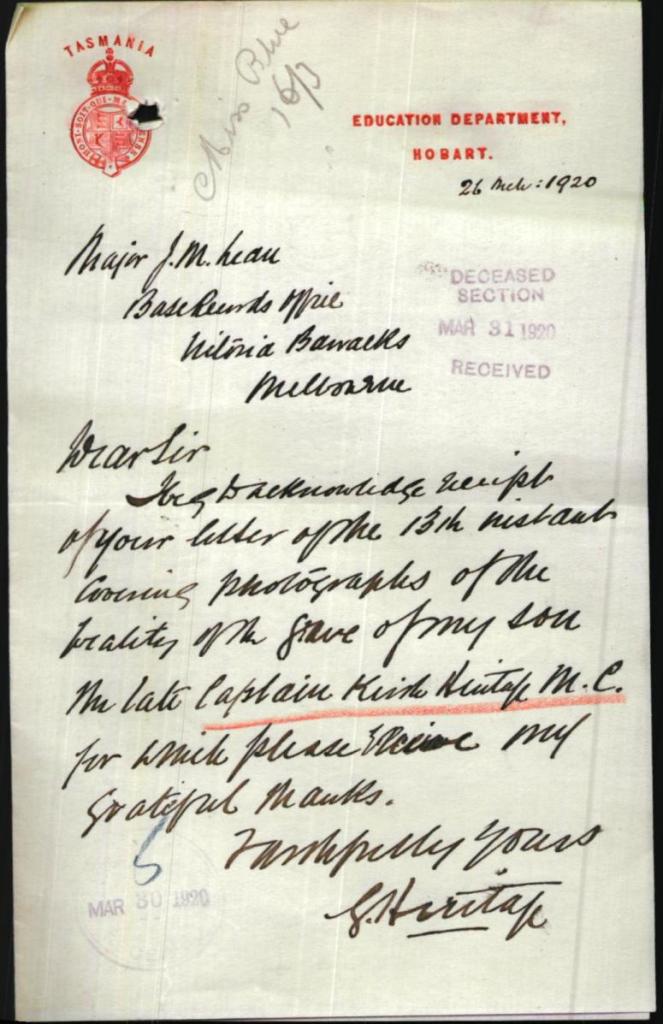 TASMANIA
HONI·SOIT·QUI·M
Miss Blue
16/3
EDUCATION DEPARTMENT,
HOBART.
26 Mch: 1920
Major J. M. Lean
Base Records Office
Victoria Barracks
Melbourne
DECEASED
SECTION
MAR 31 1920
RECEIVED
Dear Sir
I beg to acknowledge receipt
of your letter of the 13th instant
covering photographs of the
locality of the grave of my son
the late Captain Keith Heritage M.C.
for which please receive my
grateful thanks.
Faithfully yours
G. Heritage
MAR 30 1920